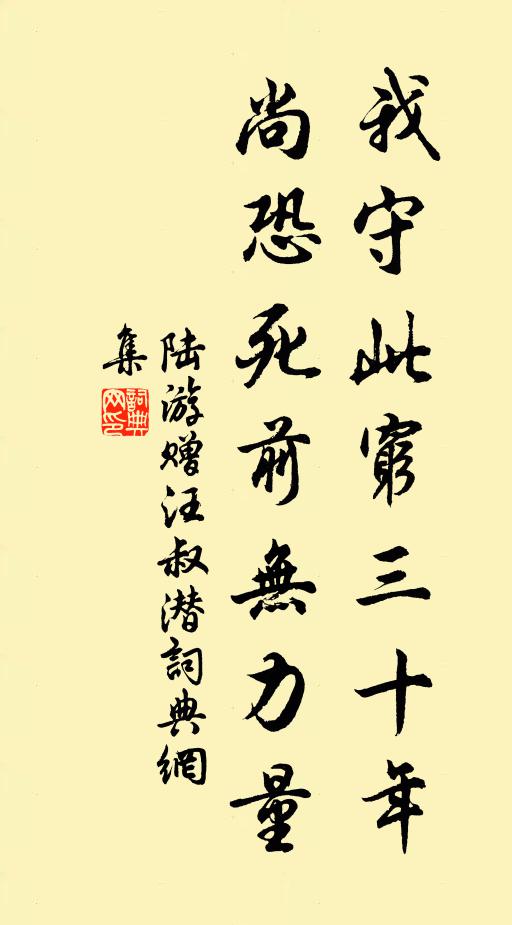 我守此窮三十年
尚恐死前無力量
陸游赠汪叔潜詞典網
集
詞典網印